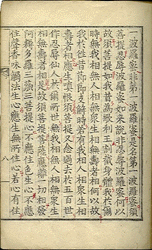 一波羅蜜非第一波羅蜜是名第一波羅蜜須
菩提忍辱波羅蜜如來說非忍辱波羅蜜何以
故須菩提如我昔為歌利王割截身體我於爾
時無我相無人相無眾生相無壽者相何以故
我於往昔節節支解時若有我相人相眾生相
壽者相應生瞋恨須菩提又念過去於五百世
作忍辱仙人於爾所世無我相無人相無眾生
相無壽者相是故須菩提菩薩應離一切相發
阿耨多羅三藐三菩提心不應住色生心不應
住聲香味觸法生心應生無所住心若心有住
八